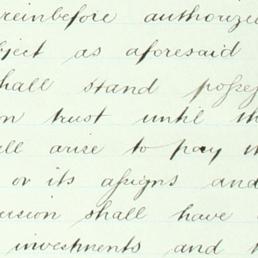 reinbefore authorized
ject as aforesaid
hall stand posses
on trust until th
ll arise to pay
or its assigns and
ision shall have
investments and